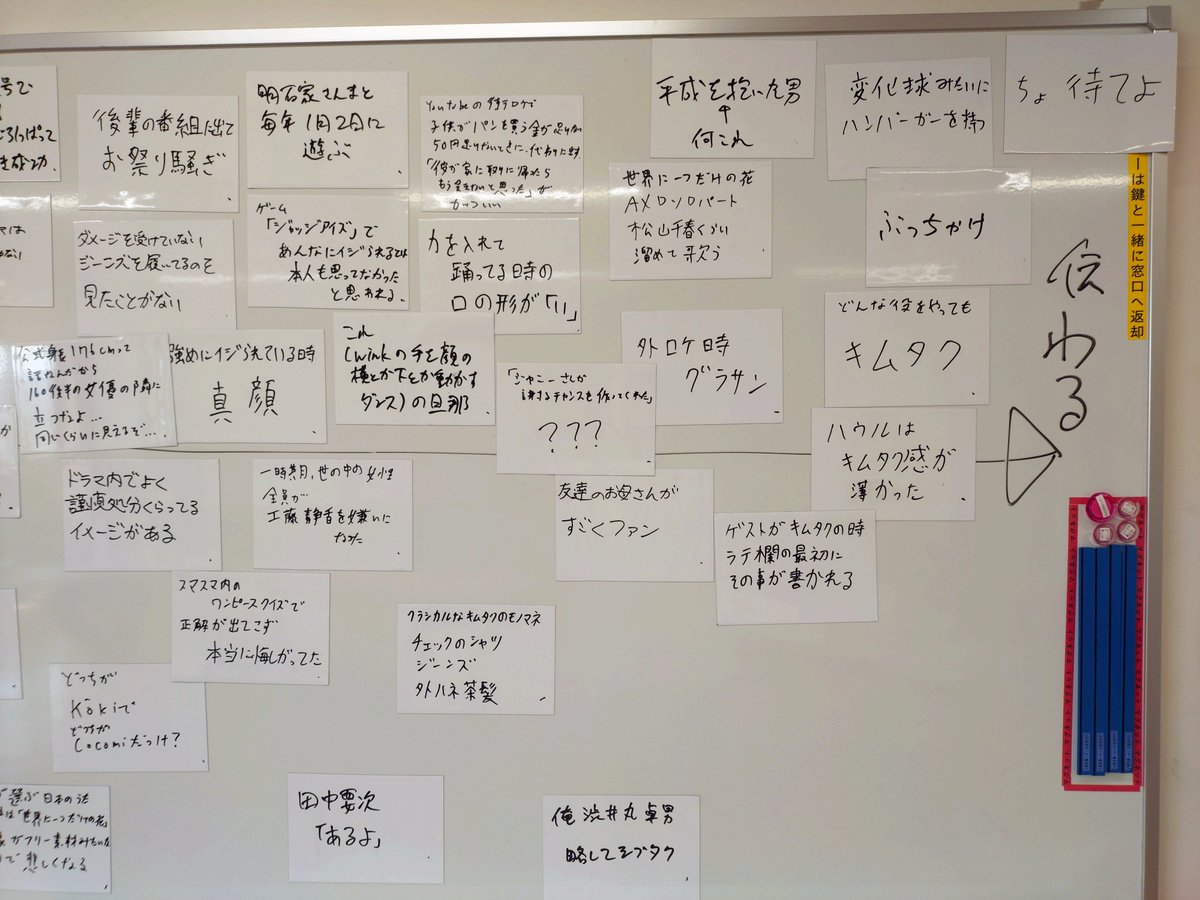 号で
ろっぱって
後輩の番組に出て
お祭り騒ぎ
明石家さんまと
毎年1月2日に
遊ぶ
Youtubeの
子供がパンを買う金が足りない
50円足りないときに、代わりに出す
「彼が家に取りに帰ったら
もう会えないと思った」が
かっこいい
平成を抱いた男
↑
何これ
変化球みたいに
ハンバーガーを持つ
ちょ待てよ
ダメージを受けていない
ジーンズを履いてるのを
見たことがない
ゲーム
「ジャッジアイズ」で
あんなにイジられるとは
本人も思ってなかった
と思われる
力を入れて
踊ってる時の
口の形が「い」
世界に一つだけの花
ソロパート
松山千春くらい
溜めて歌う
ぶっちゃけ
ーは鍵と一緒に窓口へ返却
伝わる
公式身長176cmって
160後半の女優の隣に
立つなよ…
同じくらいに見えるぞ…
強めにイジられている時
真顔
これ
(winkの手を顔の
横とか下とか動かす
ダンス)の旦那
「ジャニーさんが
謝るチャンスを作ってくれた」
???
外ロケ時
グラサン
どんな役をやっても
キムタク
ハウルは
キムタク感が
薄かった
ドラマ内でよく
謹慎処分くらってる
イメージがある
一時期、世の中の女性
全員が
工藤静香を嫌いに
なった
友達のお母さんが
すごくファン
ゲストがキムタクの時
ラテ欄の最初に
その事が書かれる
スマスマ内の
ワンピースクイズで
正解が出てこず
本当に悔しがってた
クラシカルなキムタクのモノマネ
チェックのシャツ
ジーンズ
外ハネ茶髪
どっちが
Kōkiで
どっちが
Cocomiだっけ?
選ぶ日本のうた
は「世界に一つだけの花」
がフリー素材みたいな
で悲しくなる
田中要次
「あるよ」
俺渋井丸卓男
略してシブタク
マグネット